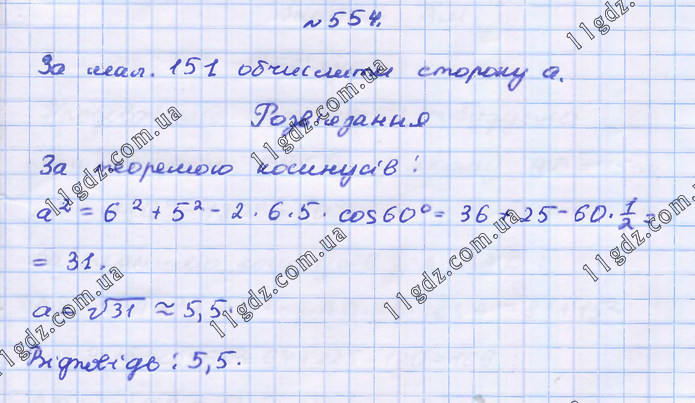 №554.
За мал. 151 обчислити сторону a.
Розв'язання
За теоремою косинусів:
a² = 6² + 5² - 2 · 6 · 5 · cos60° = 36 + 25 - 60 · 1/2 =
= 31.
a = √31 ≈ 5,5.
Відповідь: 5,5.
11gdz.com.ua
11gdz.com.ua
11gdz.com.ua
11gdz.com.ua
11gdz.com.ua
11gdz.com.ua
11gdz.com.ua
11gdz.com.ua